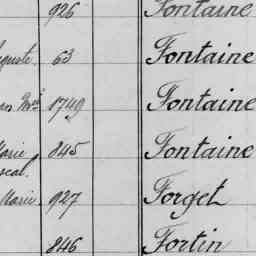 926 Fontaine
63 Fontaine
1749 Fontaine
Marie 845 Fontaine
Marie 927 Forget
846 Fortin